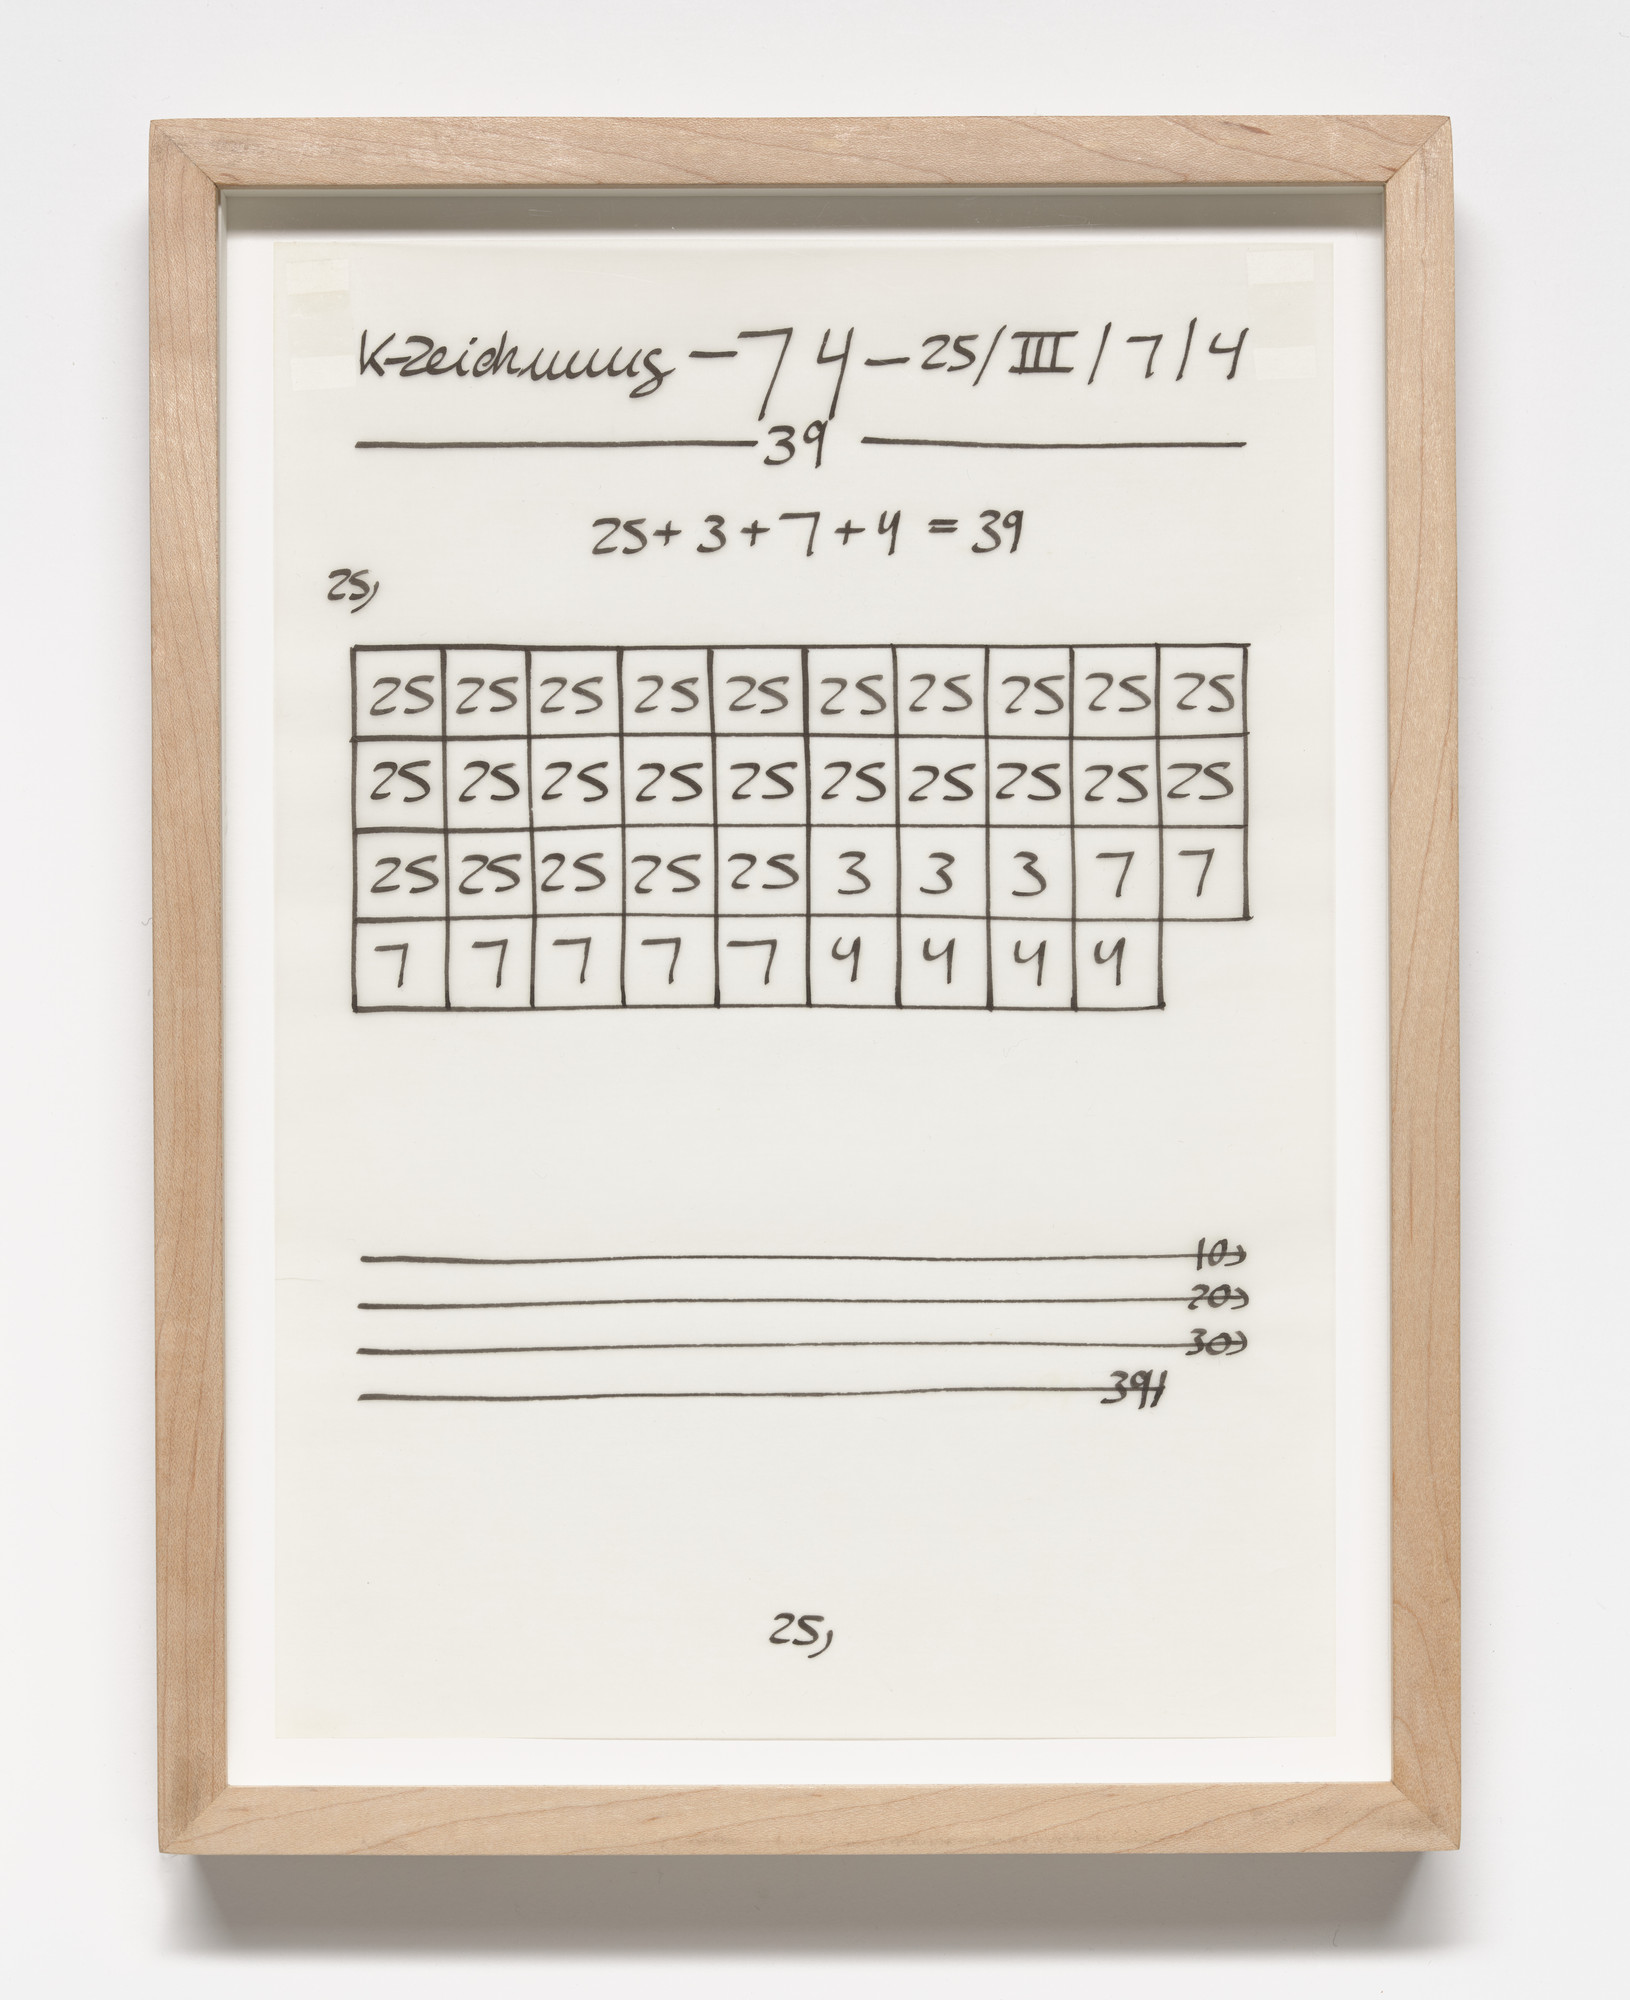 K-Zeichnung – 74 – 25/III/7/4
39
25+3+7+4=39
25,
25 25 25 25 25 25 25 25 25 25
25 25 25 25 25 25 25 25 25 25
25 25 25 25 25 3 3 3 7 7
7 7 7 7 7 4 4 4 4
10,
20,
30,
39,
25,